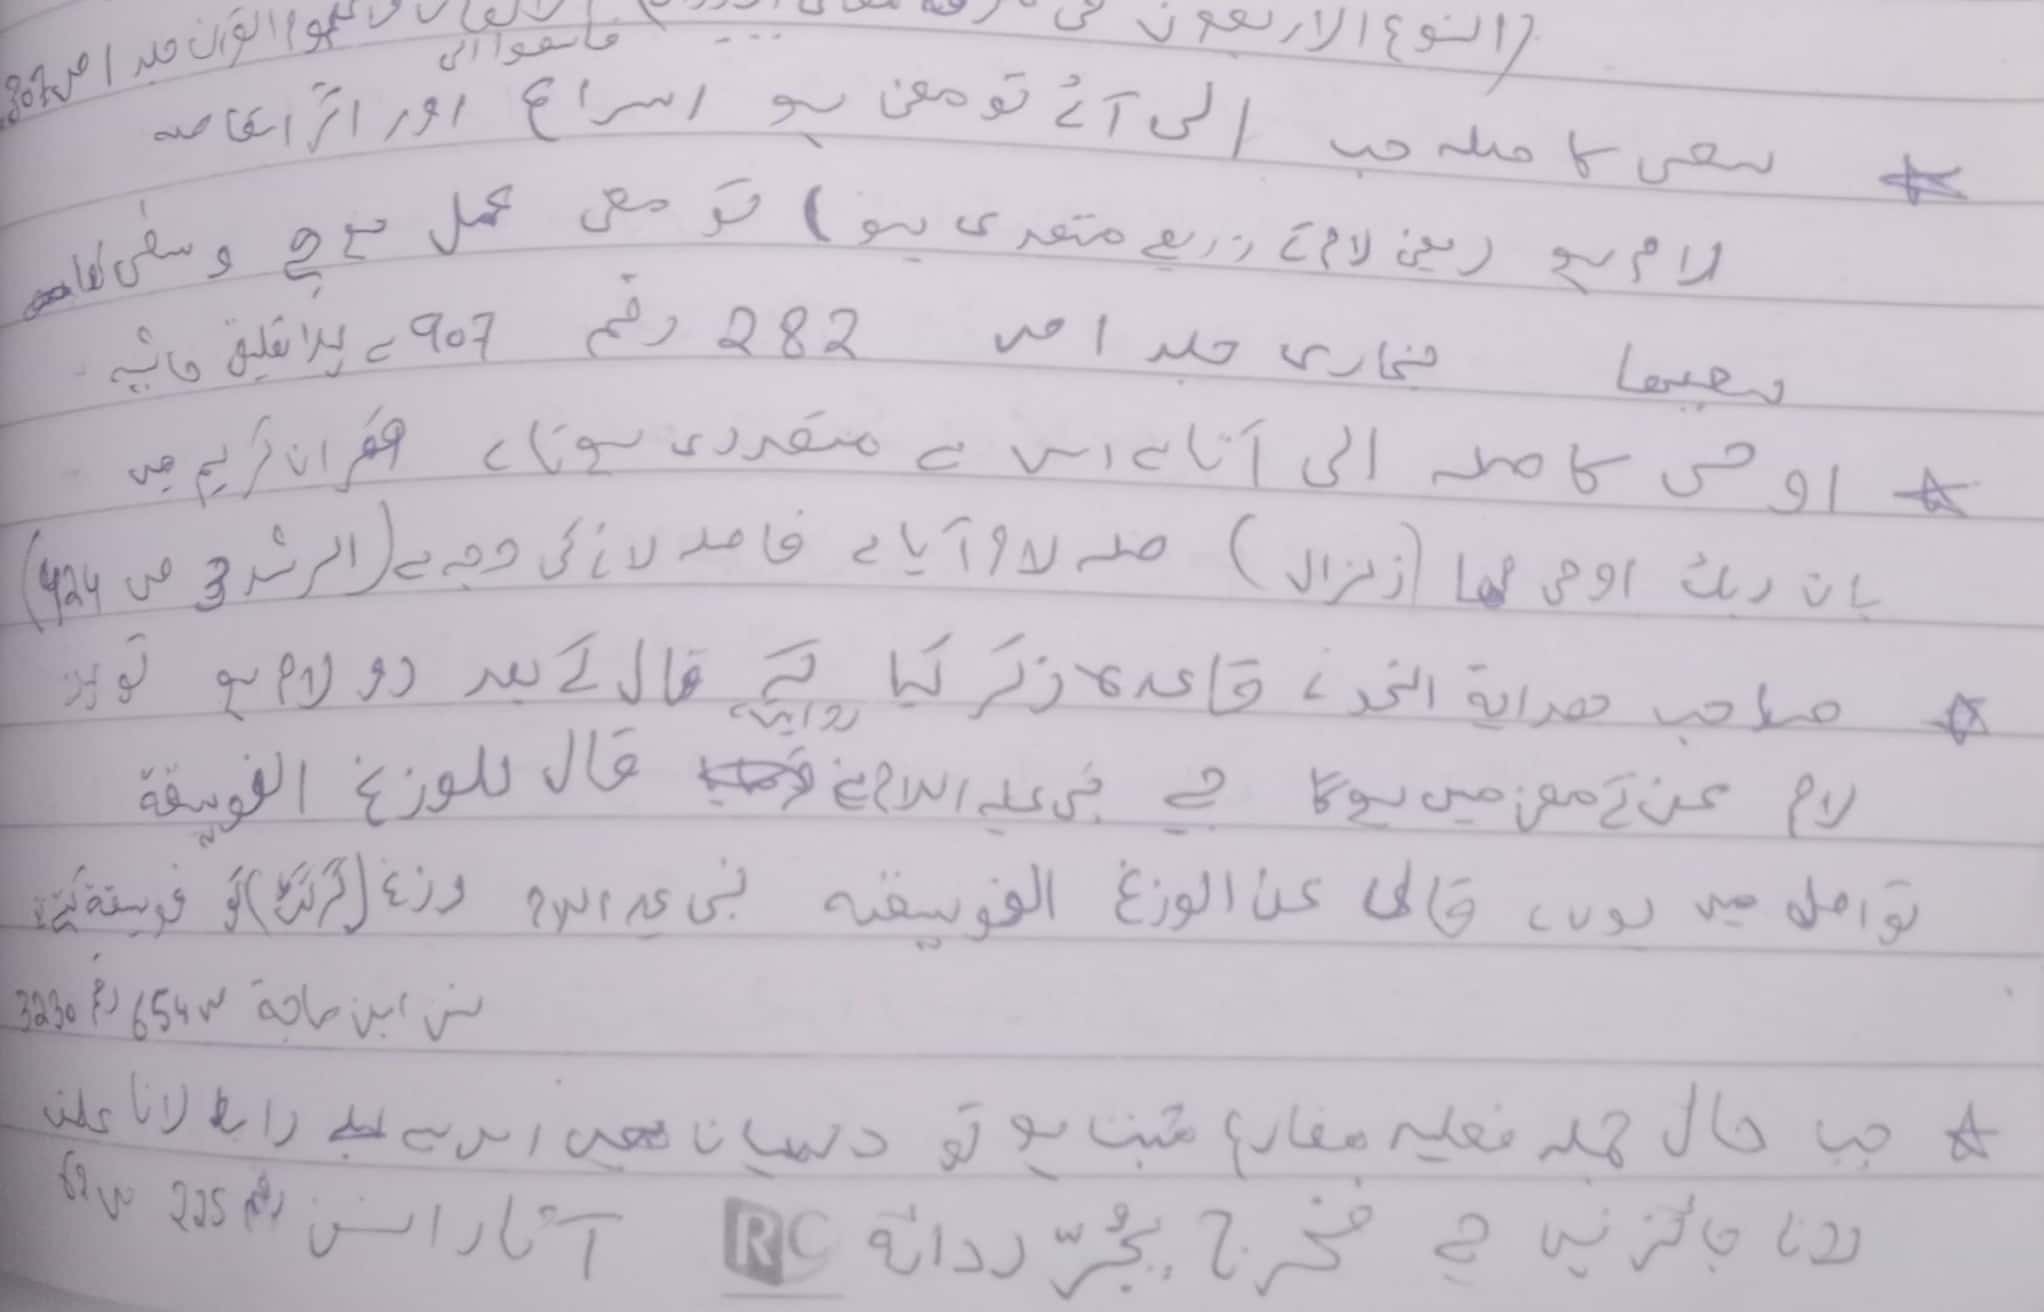 (النوع الاربعون فی معرفة معانی الادوات) الاتقان فی علوم القرآن جلد ١ ص 307
فاسعوا الی
☆ سعی کا صلہ جب الی آئے تو معنی ہو اسراع اور اگر اسکا صلہ
لام ہو (یعنی لام کے ذریعے متعدی ہو) تو معنی عمل ہوگا و سعٰی لھا
سعیھا بخاری جلد ١ ص 282 رقم 907 حاشیہ
☆ اوحی کا صلہ الی آتا ہے اس سے متعدی ہوتا ہے قران کریم میں
بان ربک اوحی لھا (زلزال) صلہ لام آیا ہے فاصلہ لانے کی وجہ سے (الرشد 3 ص 424)
☆ صاحب ھدایة النحو نے قاعدہ ذکر کیا کہ قال کے بعد دو لام ہو تو
روایت
لام عن کے معنی میں ہوگا جیسے نبی علیہ السلام نے قال للوزغ الفویسقة
تو اصل میں یوں ہے قال عن الوزغ الفویسقه نبی علیہ السلام وزغ (گرگٹ) کو فویسقة کہتے
سنن ابن ماجة ص 654 رقم 3230
☆ جب حال جملہ فعلیہ مضارع مثبت ہو تو درمیان میں رابط لانا
جائز نہیں جیسے فخرج یجُرّ ردائه آثار السنن رقم 225 ص 62
RC